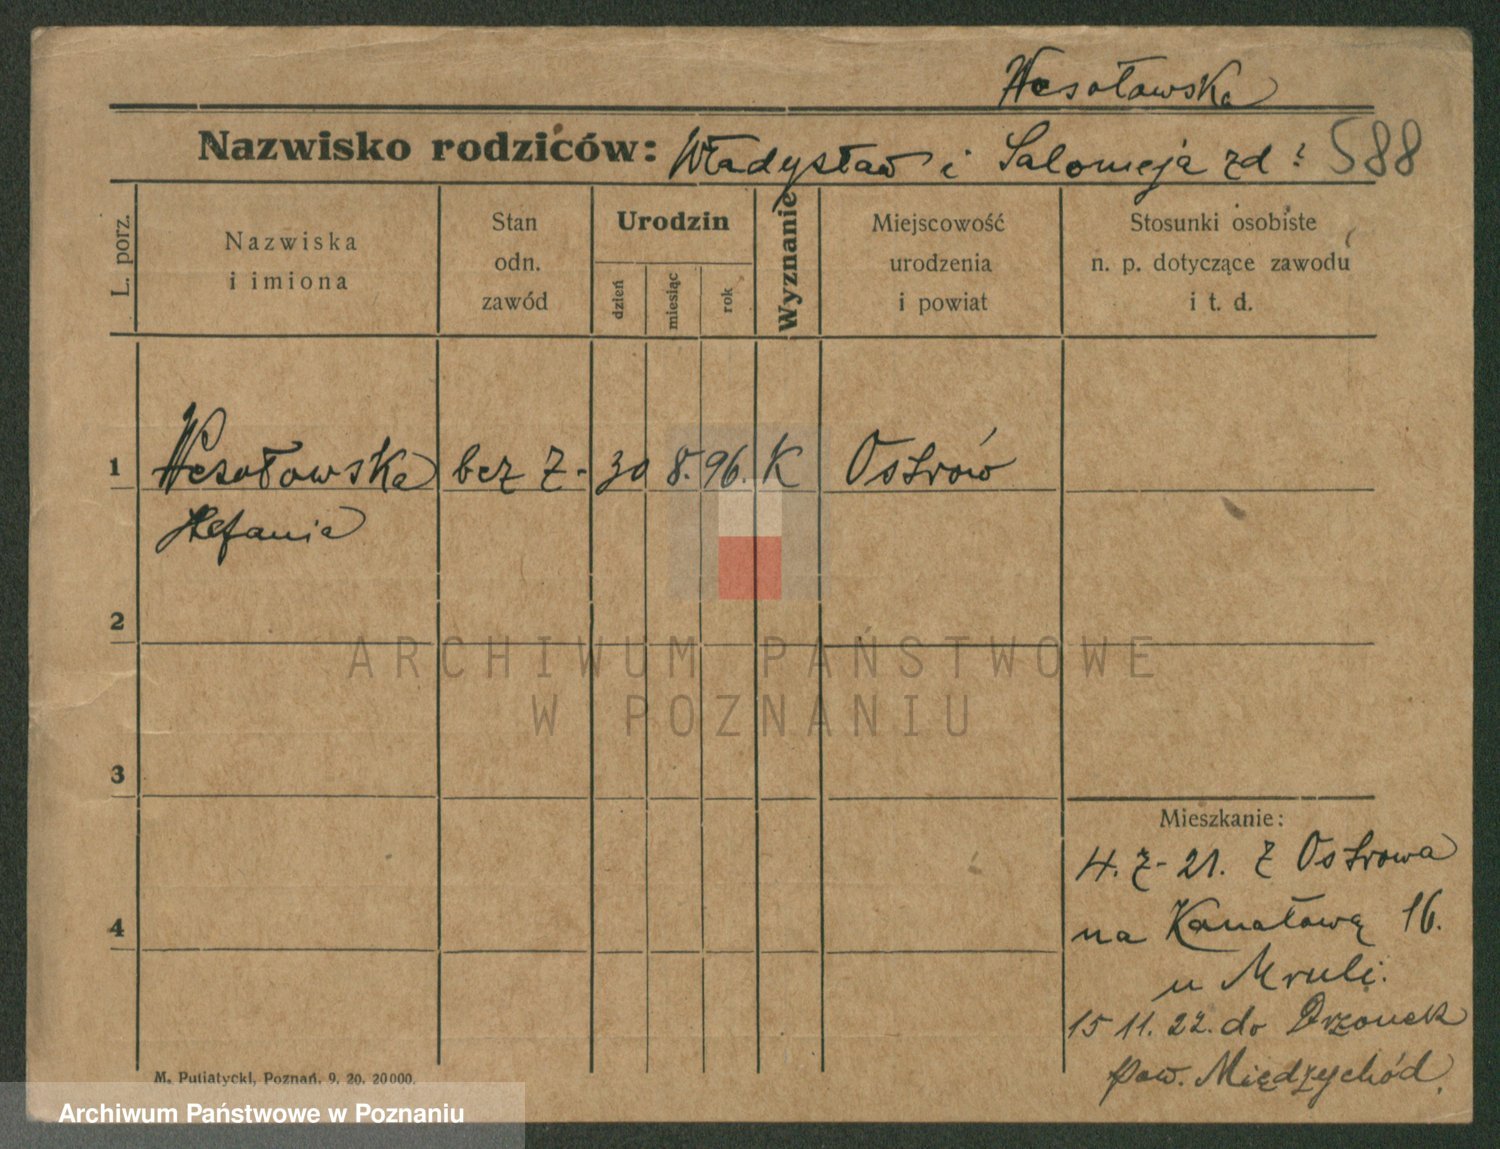 Wesołowska
Nazwisko rodziców: Władysław i Salomeja zd: 588
L. porz.
Nazwiska
i imiona
Stan
odn.
zawód
Urodzin
dzień
miesiąc
rok
Wyznanie
Miejscowość
urodzenia
i powiat
Stosunki osobiste
n. p. dotyczące zawodu
i t. d.
1 Wesołowska bez z- 30 8. 96. K Ostrów
Stefania
2
3
4
ARCHIWUM PAŃSTWOWE
W POZNANIU
Mieszkanie:
4. - 21. z Ostrowa
na Kanałową 16.
u Mruli.
15 11. 22. do Drzonek
pow. Międzychód.
M. Putiatycki, Poznań, 9. 20. 20000.
Archiwum Państwowe w Poznaniu